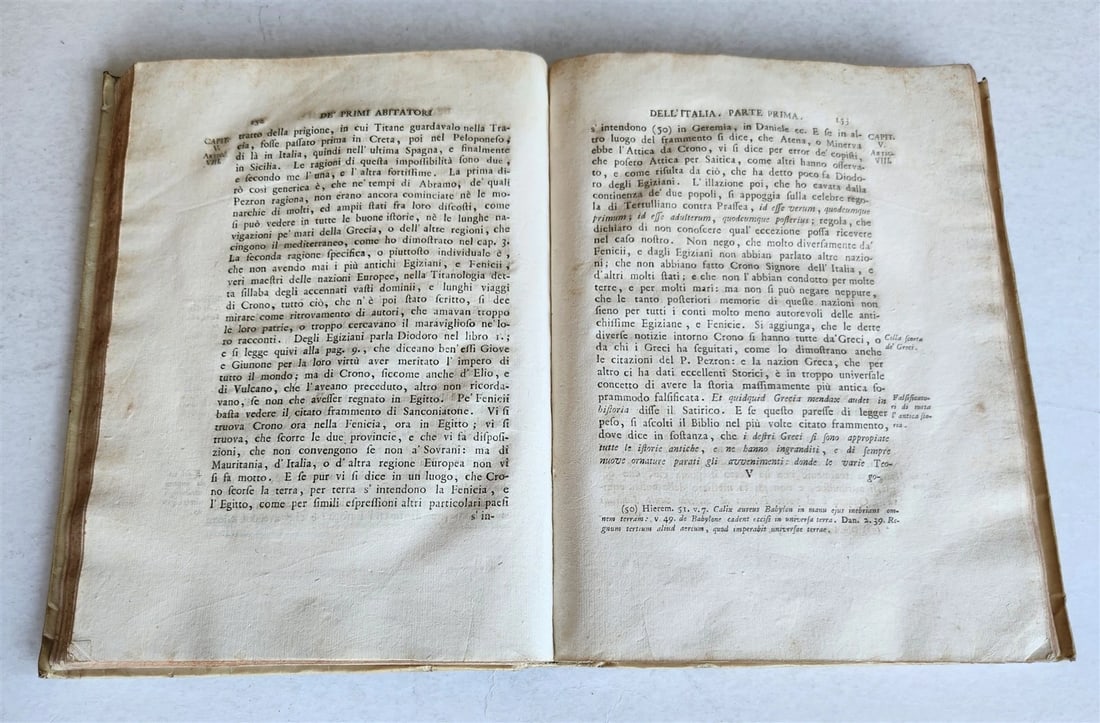 152 DE' PRIMI ABITATORI
CAPIT.
V.
ARTIC.
VIII.
tratto della prigione, in cui Titane guardavalo nella Tra-
cia, fosse passato prima in Creta, poi nel Peloponeso,
di là in Italia, quindi nell' ultima Spagna, e finalmente
in Sicilia. Le ragioni di questa impossibilità sono due,
e secondo me l'una, e l'altra fortissime. La prima di-
rò così generica è, che ne' tempi di Abramo, de' quali
Pezron ragiona, non erano ancora cominciate nè le mo-
narchie di molti, ed ampii stati fra loro discosti, come
si può vedere in tutte le buone istorie, nè le lunghe na-
vigazioni pe' mari della Grecia, o dell' altre regioni, che
cingono il mediterraneo, come ho dimostrato nel cap. 3.
La seconda ragione specifica, o piuttosto individuale è,
che non avendo mai i più antichi Egiziani, e Fenicii,
veri maestri delle nazioni Europee, nella Titanologia det-
ta sillaba degli accennati vasti dominii, e lunghi viaggi
di Crono, tutto ciò, che n'è poi stato scritto, si dee
mirare come ritrovamento di autori, che amavan troppo
le loro patrie, o troppo cercavano il maraviglioso ne' lo-
ro racconti. Degli Egiziani parla Diodoro nel libro 1.;
e si legge quivi alla pag. 9., che diceano ben' essi Giove
e Giunone per la loro virtù aver meritato l' impero di
tutto il mondo; ma di Crono, siccome anche d' Elio, e
di Vulcano, che l'aveano preceduto, altro non ricorda-
vano, se non che avesser regnato in Egitto. Pe' Fenicii
basta vedere il citato frammento di Sanconiatone. Vi si
truova Crono ora nella Fenicia, ora in Egitto; vi si
truova, che scorre le due provincie, e che vi fa disposi-
zioni, che non convengono se non a' Sovrani: ma di
Mauritania, d' Italia, o d' altra regione Europea non vi
si fa motto. E se pur vi si dice in un luogo, che Cro-
no scorse la terra, per terra s' intendono la Fenicia, e
l' Egitto, come per simili espressioni altri particolari paesi
s' in-
DELL' ITALIA. PARTE PRIMA. 153
s' intendono (50) in Geremia, in Daniele ec. E se in al-
tro luogo del frammento si dice, che Atena, o Minerva
ebbe l' Attica da Crono, vi si dice per error de' copisti,
che posero Attica per Saitica, come altri hanno osserva-
to, e come risulta da ciò, che ha detto poco fa Diodo-
ro degli Egiziani. L' illazione poi, che ho cavata dalla
continenza de' due popoli, si appoggia sulla celebre rego-
la di Tertulliano contra Prassea, id esse verum, quodcumque
primum; id esse adulterum, quodcumque posterius; regola, che
dichiaro di non conoscere qual' eccezione possa ricevere
nel caso nostro. Non nego, che molto diversamente da'
Fenicii, e dagli Egiziani non abbian parlato altre nazio-
ni; che non abbiano fatto Crono Signore dell' Italia, e
d' altri molti stati; e che non l'abbian condotto per molte
terre, e per molti mari: ma non si può negare neppure,
che le tanto posteriori memorie di queste nazioni non
sieno per tutti i conti molto meno autorevoli delle anti-
chissime Egiziane, e Fenicie. Si aggiunga, che le dette
diverse notizie intorno Crono si hanno tutte da' Greci, o
da chi i Greci ha seguitati, come lo dimostrano anche
le citazioni del P. Pezron: e la nazion Greca, che per
altro ci ha dati eccellenti Storici, è in troppo universale
concetto di avere la storia massimamente più antica so-
prammodo falsificata. Et quidquid Grecia mendax audet in
historia disse il Satirico. E se questo paresse di legger
peso, si ascolti il Biblio nel più volte citato frammento,
dove dice in sostanza, che i destri Greci si sono appropiate
tutte le istorie antiche, e ne hanno ingranditi, e di sempre
nuove ornature parati gli avvenimenti: donde le varie Teo-
V
go-
CAPIT.
V.
ARTIC.
VIII.
Colla storia
de' Greci.
Falsificato-
ri di tutta
l' antica sto-
ria.
(50) Hierem. 51. v. 7. Calix aureus Babylon in manu ejus inebrians om-
nem terram. v. 49. de Babylone cadent occisi in universa terra. Dan. 2. 39. Re-
gnum tertium aliud aereum, quod imperabit universae terrae.